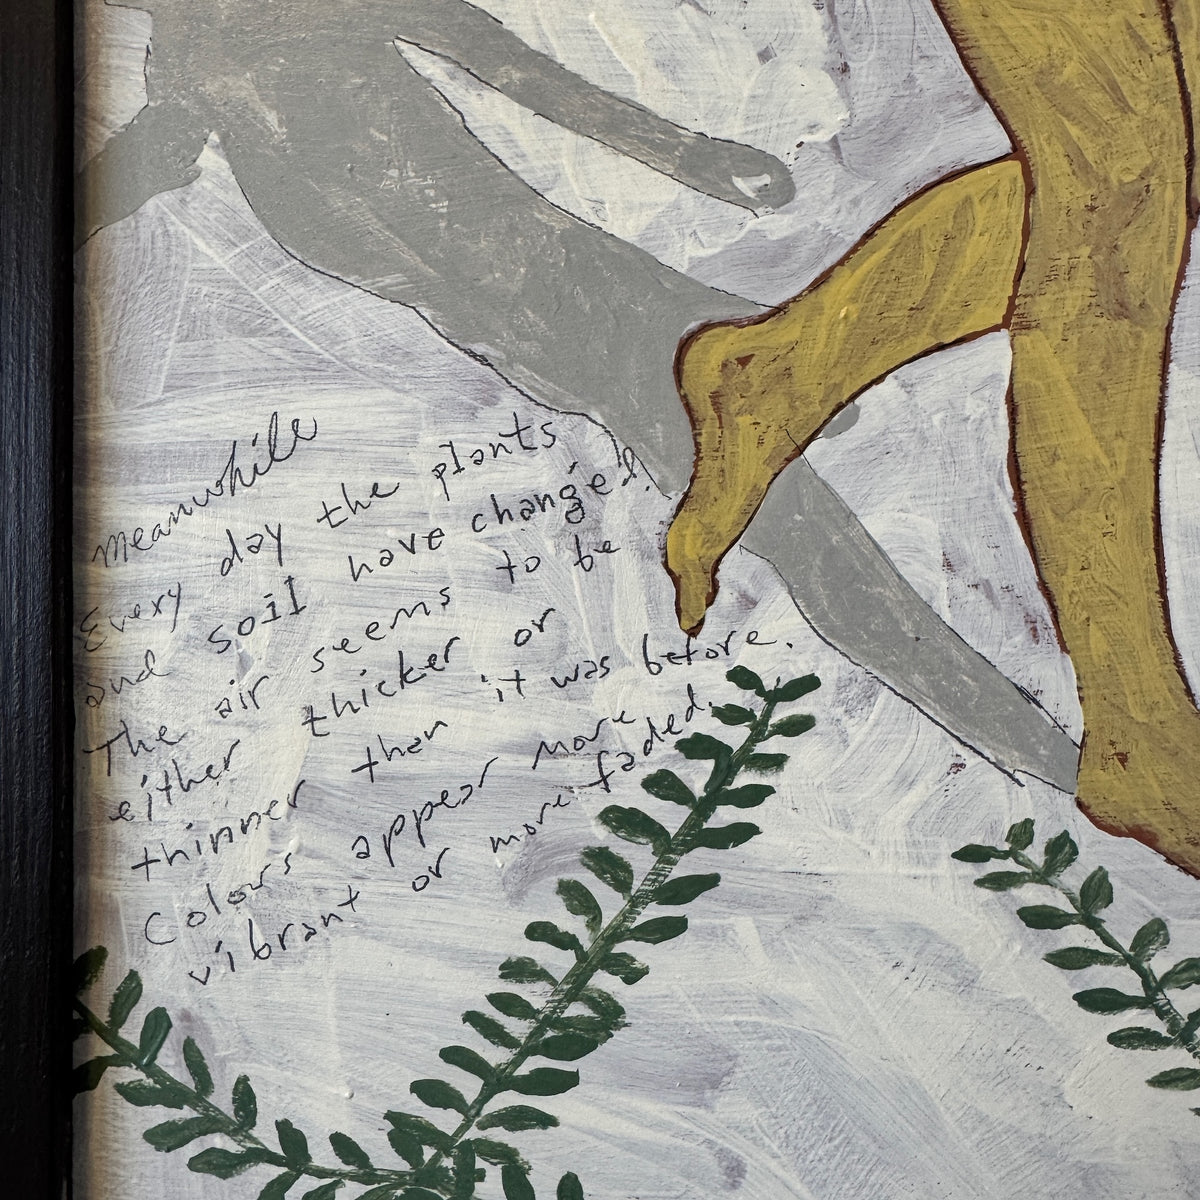 meanwhile
Every day the plants
and soil have changed.
The air seems to be
either thicker or
thinner than it was before.
Colours appear more
vibrant or more faded.